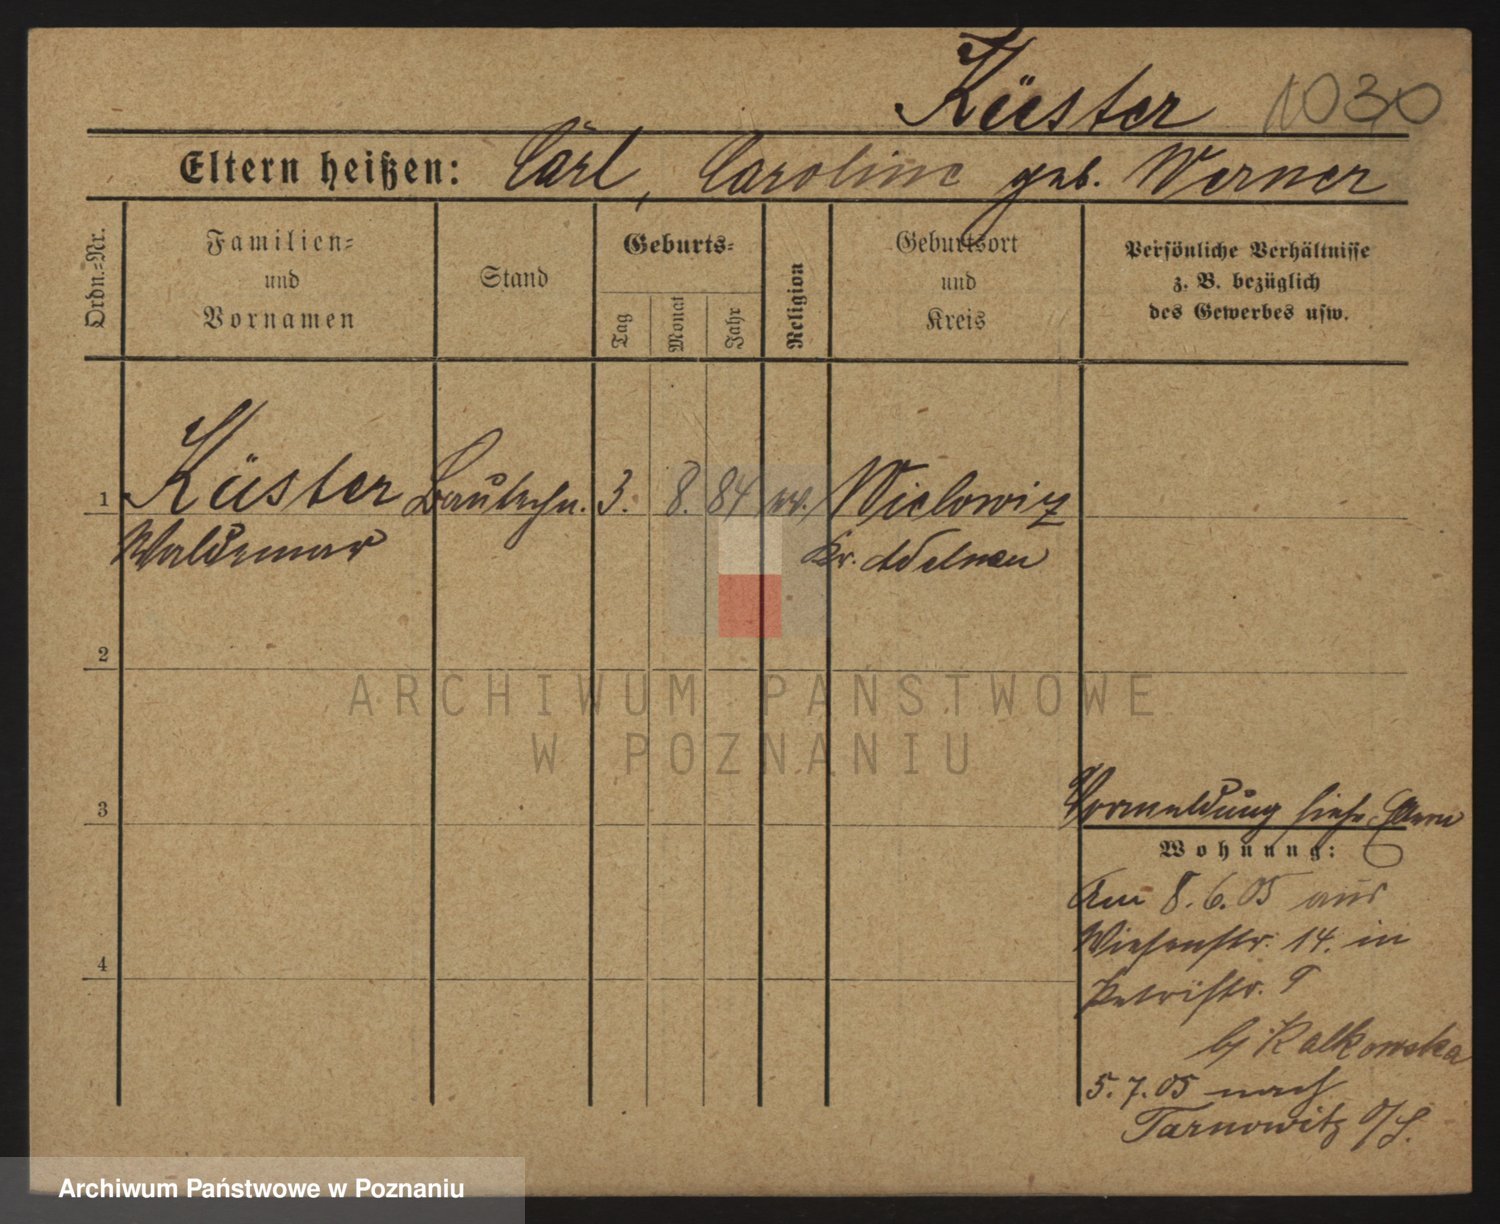 Küster 1030
Eltern heißen: Carl, Caroline geb. Werner
Ordn.-Nr.
Familien-
und
Vornamen
Stand
Geburts-
Tag
Monat
Jahr
Religion
Geburtsort
und
Kreis
Persönliche Verhältnisse
z. B. bezüglich
des Gewerbes usw.
1 Küster Bautechn. 3. 8. 84 ev. Wielowiz
Waldemar Kr. Adelnau
2
ARCHIWUM PAŃSTWOWE
W POZNANIU
3 Vormeldung siehe Eltern
Wohnung:
Am 8.6.05 aus
Wiesenstr. 14. in
4
Petristr. 9
bj Kalkowska
5.7.05 nach
Tarnowitz O/S.
Archiwum Państwowe w Poznaniu